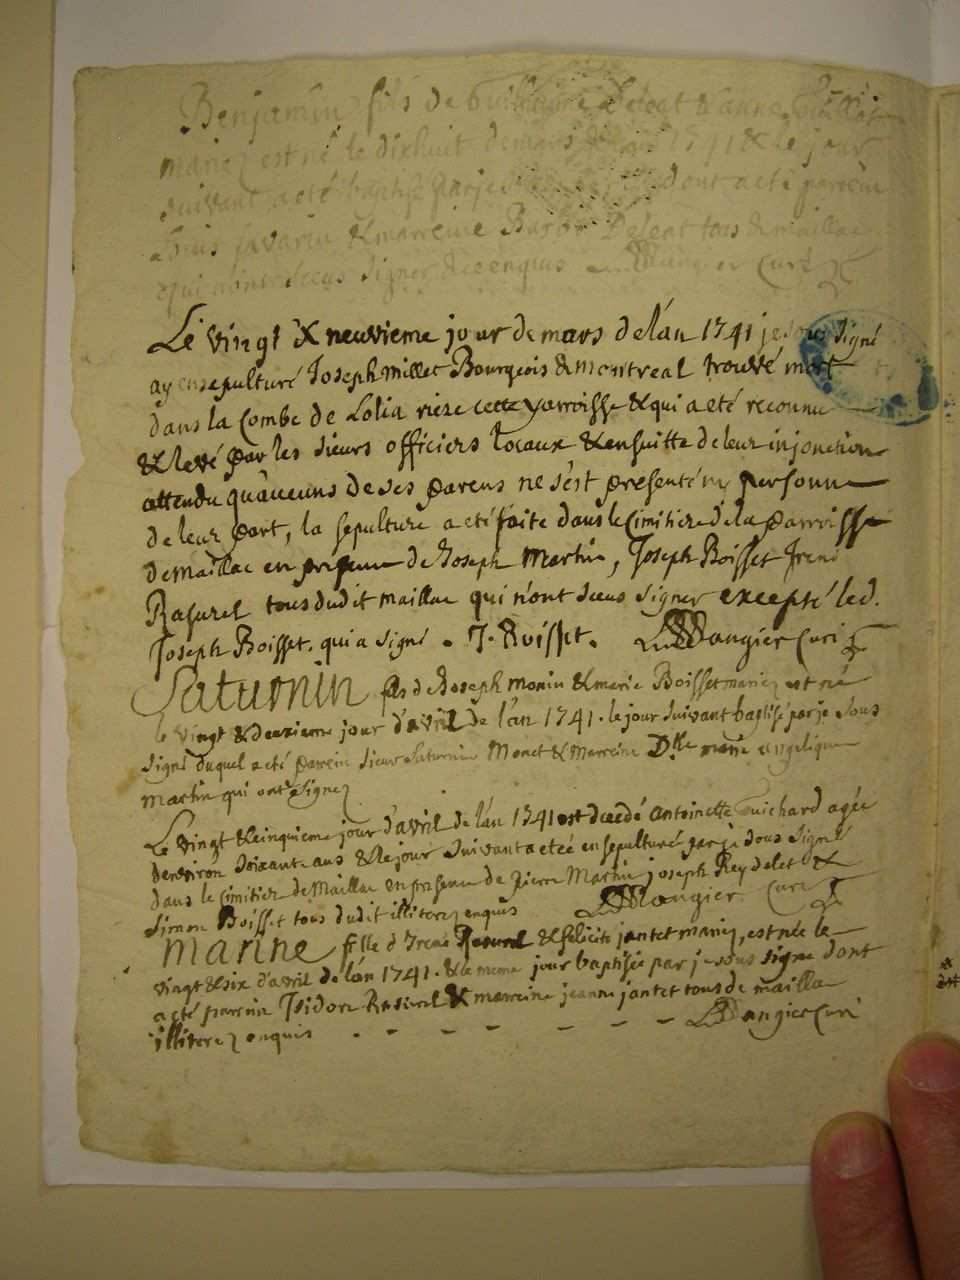 Benjamin fils de Guillaume Deleat & anne
mariez est né le dixhuit de mars 1741 & le jour
suivant a eté baptisé par je dont a eté parrein
savarin & marreine Deleat tous de maillac
qui n'ont sceus signer de ce enquis curé
Le vingt & neuvieme jour de mars de l'an 1741 je sous signé
ay ensepulturé Joseph millet Bourgeois de montreal trouvé mort
dans la Combe de Lolia riere cette parroisse & qui a eté reconnu
& levé par les sieurs officiers locaux & ensuitte de leur injonction
attendu qu'aucuns de ses parens ne s'est presenté ny personne
de leur part, la sepulture a eté faite dans le Cimitiere de la parroisse
de maillac en presence de Joseph Martin, Joseph Boisset Irené
Rasurel tous dudit maillac qui n'ont sceus signer excepté led.
Joseph Boisset. qui a signé . J. Boisset. Dangier Curé
Saturnin fils de Joseph monin & marie Boisset mariez est né
le vingt & deuxieme jour d'avril de l'an 1741. le jour suivant baptisé par je sous
signé duquel a eté parrein sieur Saturnin Monet & Marreine Dlle marie angelique
martin qui ont signez
Le vingt & cinquieme jour d'avril de l'an 1741 est decedé antoinette Guichard agée
d'environ soixante ans & le jour suivant a eté ensepulturé par je sous signé
dans le cimitier de Maillac en presence de pierre Martin joseph Reydelet &
Simon Boisset tous dudit illiterez enquis Dangier Curé
Marine fille d'Irené Rasurel & felicité jantet mariez, est née le
vingt & six d'avril de l'an 1741. & le meme jour baptisée par je sous signé dont
a eté parrein Isidore Rasurel & marreine jeanne jantet tous de maillac
illiterez enquis - - - - - - Dangier Curé